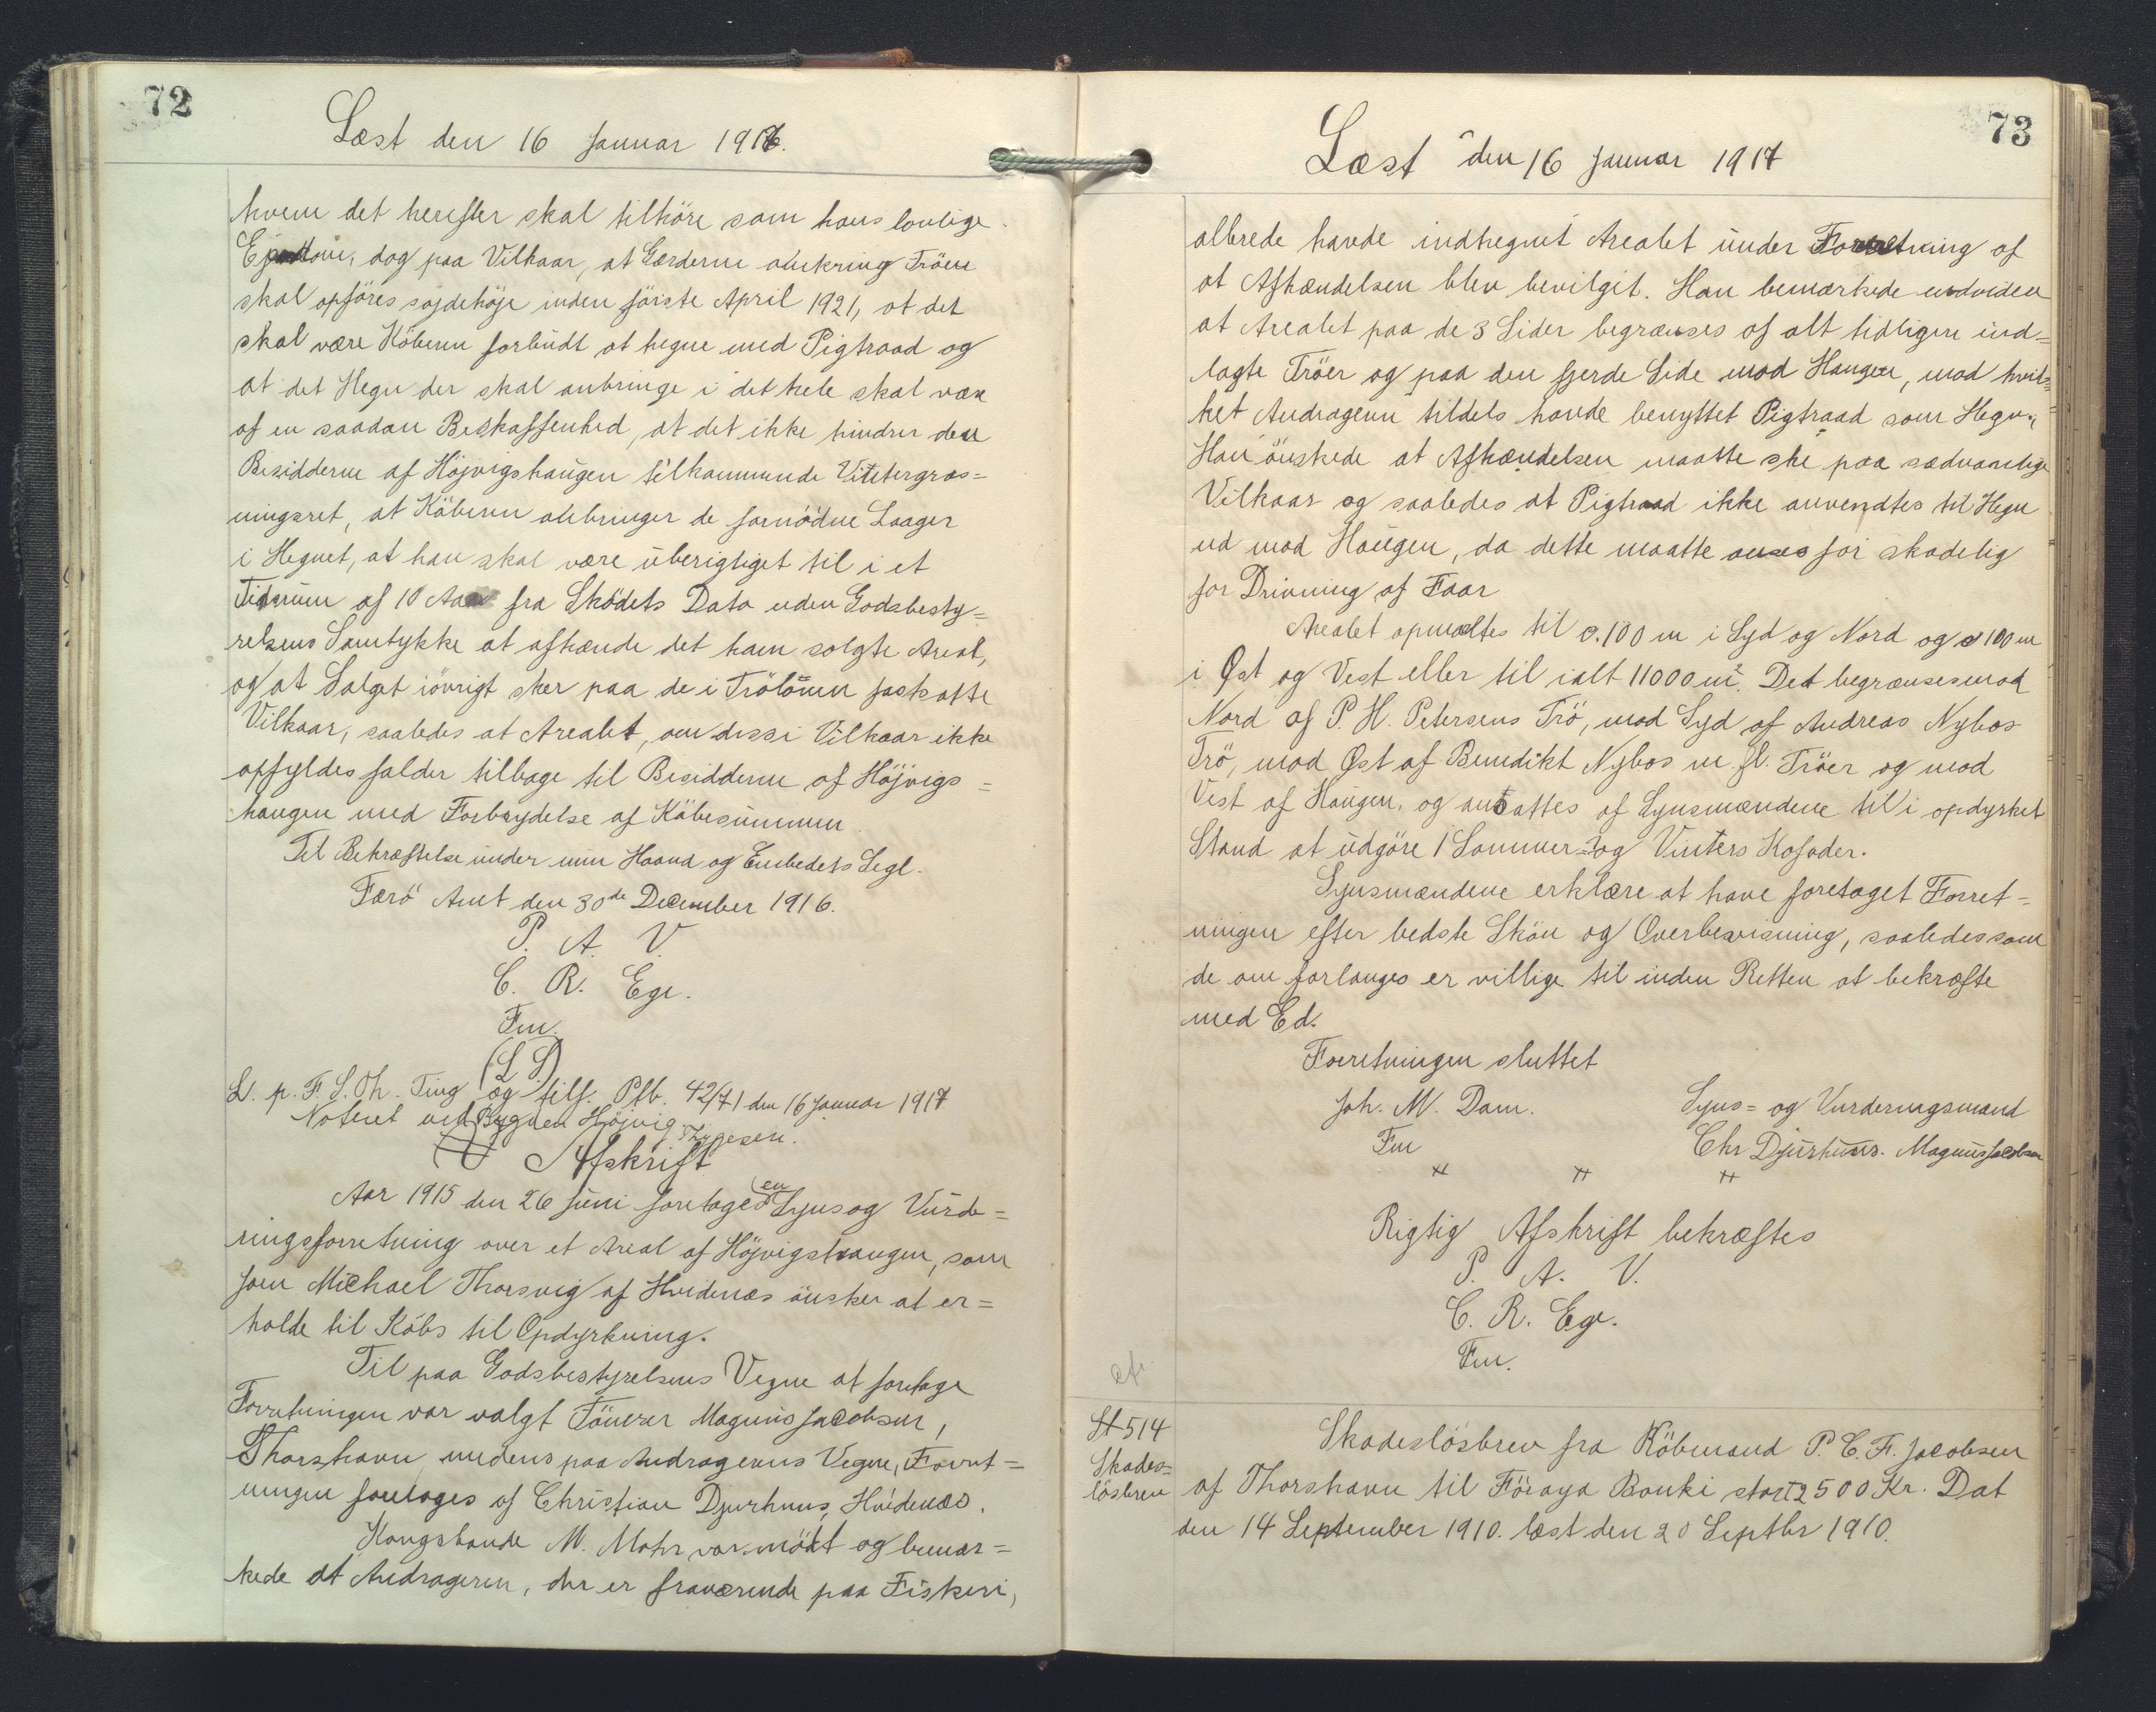 72
Læst den 16 Januar 1916.
hvem det herefter skal tilhöre som hans lovlige
Ejendom, dog paa Vilkaar, at Gærderne omkring Tröen
skal opföres sajdehöje inden förste April 1921, at det
skal være Köberen forbudt at hegne med Pigtraad og
at det Hegn der skal anbringe i det hele skal være
af en saadan Beskaffenhed, at det ikke hindrer den
Besidderne af Höjvigshaugen tilkommende Vintergræs=
ningsret, at Köberen anbringer de fornödne Laager
i Hegnet, at han skal være uberigtiget til i et
Tidsrum af 10 Aar fra Sködets Dato uden Godsbesty=
relsens Samtykke at afhænde det ham solgte Areal,
og at Salget iövrigt sker paa de i Trölöven fastsatte
Vilkaar, saaledes at Arealet, om disse Vilkaar ikke
opfyldes falder tilbage til Besidderne af Höjvigs=
haugen med Forbrydelse af Köbesummen.
Til Bekræftelse under min Haand og Embedets Segl.
Færö Amt den 30de December 1916.
P. A. V.
C. R. Ege.
Fm.
(L S)
L. p. F. S. Th. Ting og tilf. Pfb. 42/71 den 16 Januar 1917
Noteret ved Bygden Höjvig.
Thygesen.
Afskrift
Aar 1915 den 26 Juni foretoges en Syns og Vurde=
ringsforretning over et Areal af Höjvigshaugen, som
Joen Michael Thorsvig af Hvidenæs önsker at er=
holde til Köbs til Opdyrkning.
Til paa Godsbestyrelsens Vegne at foretage
Forretningen var valgt Töuerer Magnus Jacobsen,
Thorshavn medens paa Andragerens Vegne, Forret=
ningen foretoges af Christian Djurhuus, Hvidenæs.
Kongsbonde M. Mohr var mödt og bemær=
kede at Andrageren, der er fraværende paa Fiskeri,
73
Læst den 16 Januar 1917
allerede havde indhegnet Arealet under Forretning af
at Afhændelsen blev bevilget. Han bemærkede endvidere
at Arealet paa de 3 Sider begrænses af alt tidligere ind=
lagte Tröer og paa den fjerde Side mod Haugen, mod hvil=
ket Andrageren tildels havde benyttet Pigtraad som Hegn.
Han önskede at Afhændelsen maatte ske paa sædvanlige
Vilkaar og saaledes at Pigtraad ikke anvendtes til Hegn
ud mod Haugen, da dette maatte anses for skadelig
for Drivning af Faar
Arealet opmaaltes til c. 100 m i Syd og Nord og c 110 m
i Øst og Vest eller til ialt 11000 m². Det begrænses mod
Nord af P. H. Petersens Trö, mod Syd af Andreas Nybos
Trö, mod Øst af Benedikt Nybos m. fl. Tröer og mod
Vest af Haugen, og ansattes af Synsmændene til i opdyrket
Stand at udgöre 1 Sommer= og Vinters Kofoder.
Synsmændene erklære at have foretaget Forret=
ningen efter bedste Skön og Overbevisning, saaledes som
de om forlanges er villige til inden Retten at bekræfte
med Ed.
Forretningen sluttet
Joh. M. Dam. Syns= og Vurderingsmænd
Fm Chr Djurhuus. Magnus Jacobsen
Rigtig Afskrift bekræftes
P. A. V.
C. R. Ege.
Fm.
cfr.
St 514
Skades=
lösbrev
Skadeslösbrev fra Köbmand P. C. F. Jacobsen
af Thorshavn til Föroya Banki stort 2500 Kr. Dat
den 14 September 1910. læst den 20 Septbr 1910.